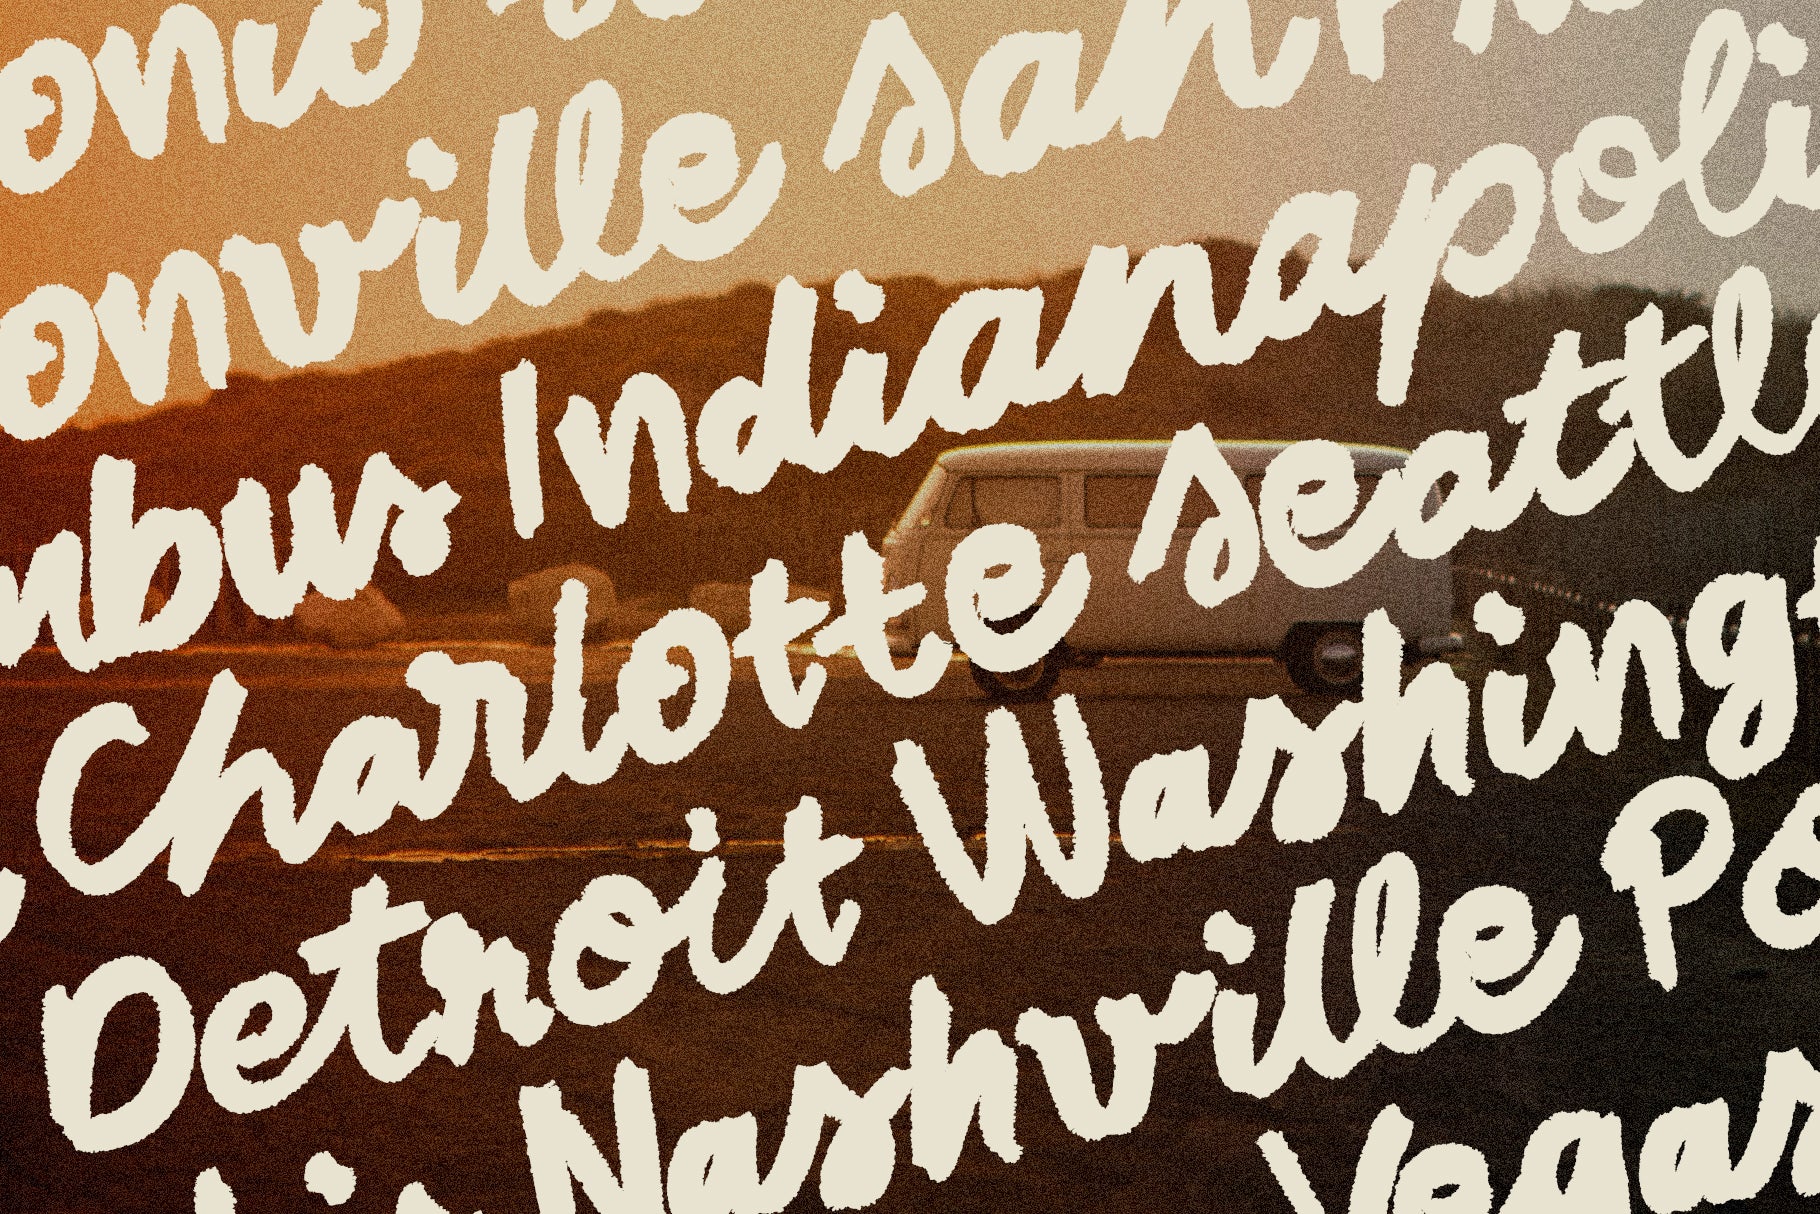 onio
onville san
mbus Indianapoli
Charlotte seattl
Detroit Washing
Nashville Po
Vegas